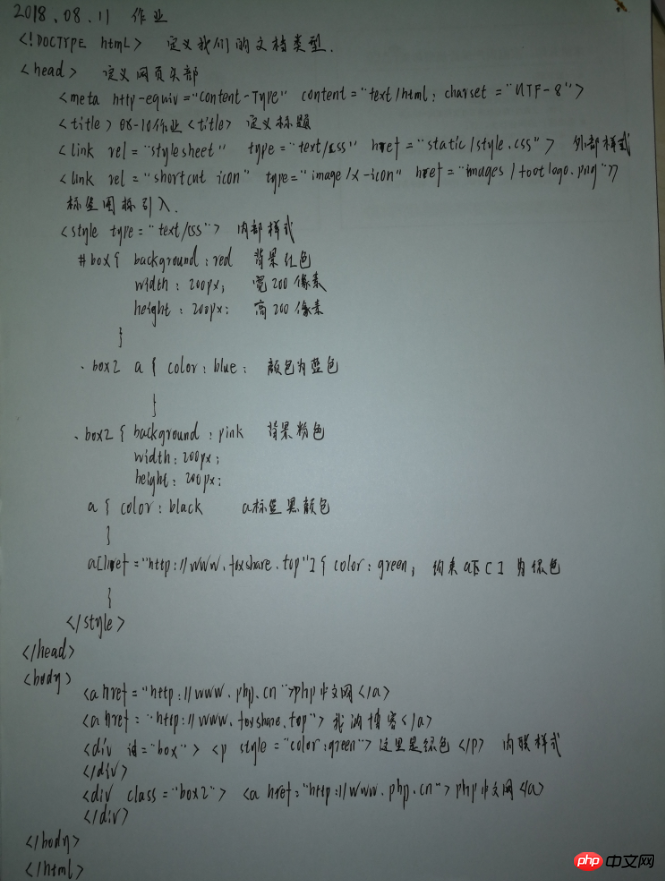 2018.08.11 作业
<!DOCTYPE html> 定义我们的文档类型.
<head> 定义网页头部
<meta http-equiv="Content-Type" content="text/html; charset="UTF-8">
<title>08-10作业<title> 定义标题
<link rel="stylesheet" type="text/css" href="static/style.css"> 外部样式
<link rel="shortcut icon" type="image/x-icon" href="images/footlogo.png">
标签图标引入.
<style type="text/css"> 内部样式
#box{ background:red 背景红色
width: 200px; 宽200像素
height: 200px; 高200像素
}
.box2 a { color: blue; 颜色为蓝色
}
.box2 { background: pink 背景粉色
width: 200px;
height: 200px;
a { color: black a标签黑颜色
}
a[href="http://www.foxshare.top"] { color: green; 约束a下[] 为绿色
}
</style>
</head>
<body>
<a href="http://www.php.cn">php中文网</a>
<a href="http://www.foxshare.top">我的博客</a>
<div id="box"> <p style="color:green">这里是绿色</p> 内联样式
</div>
<div class="box2"> <a href="http://www.php.cn">php中文网</a>
</div>
</body>
</html>
php中文网